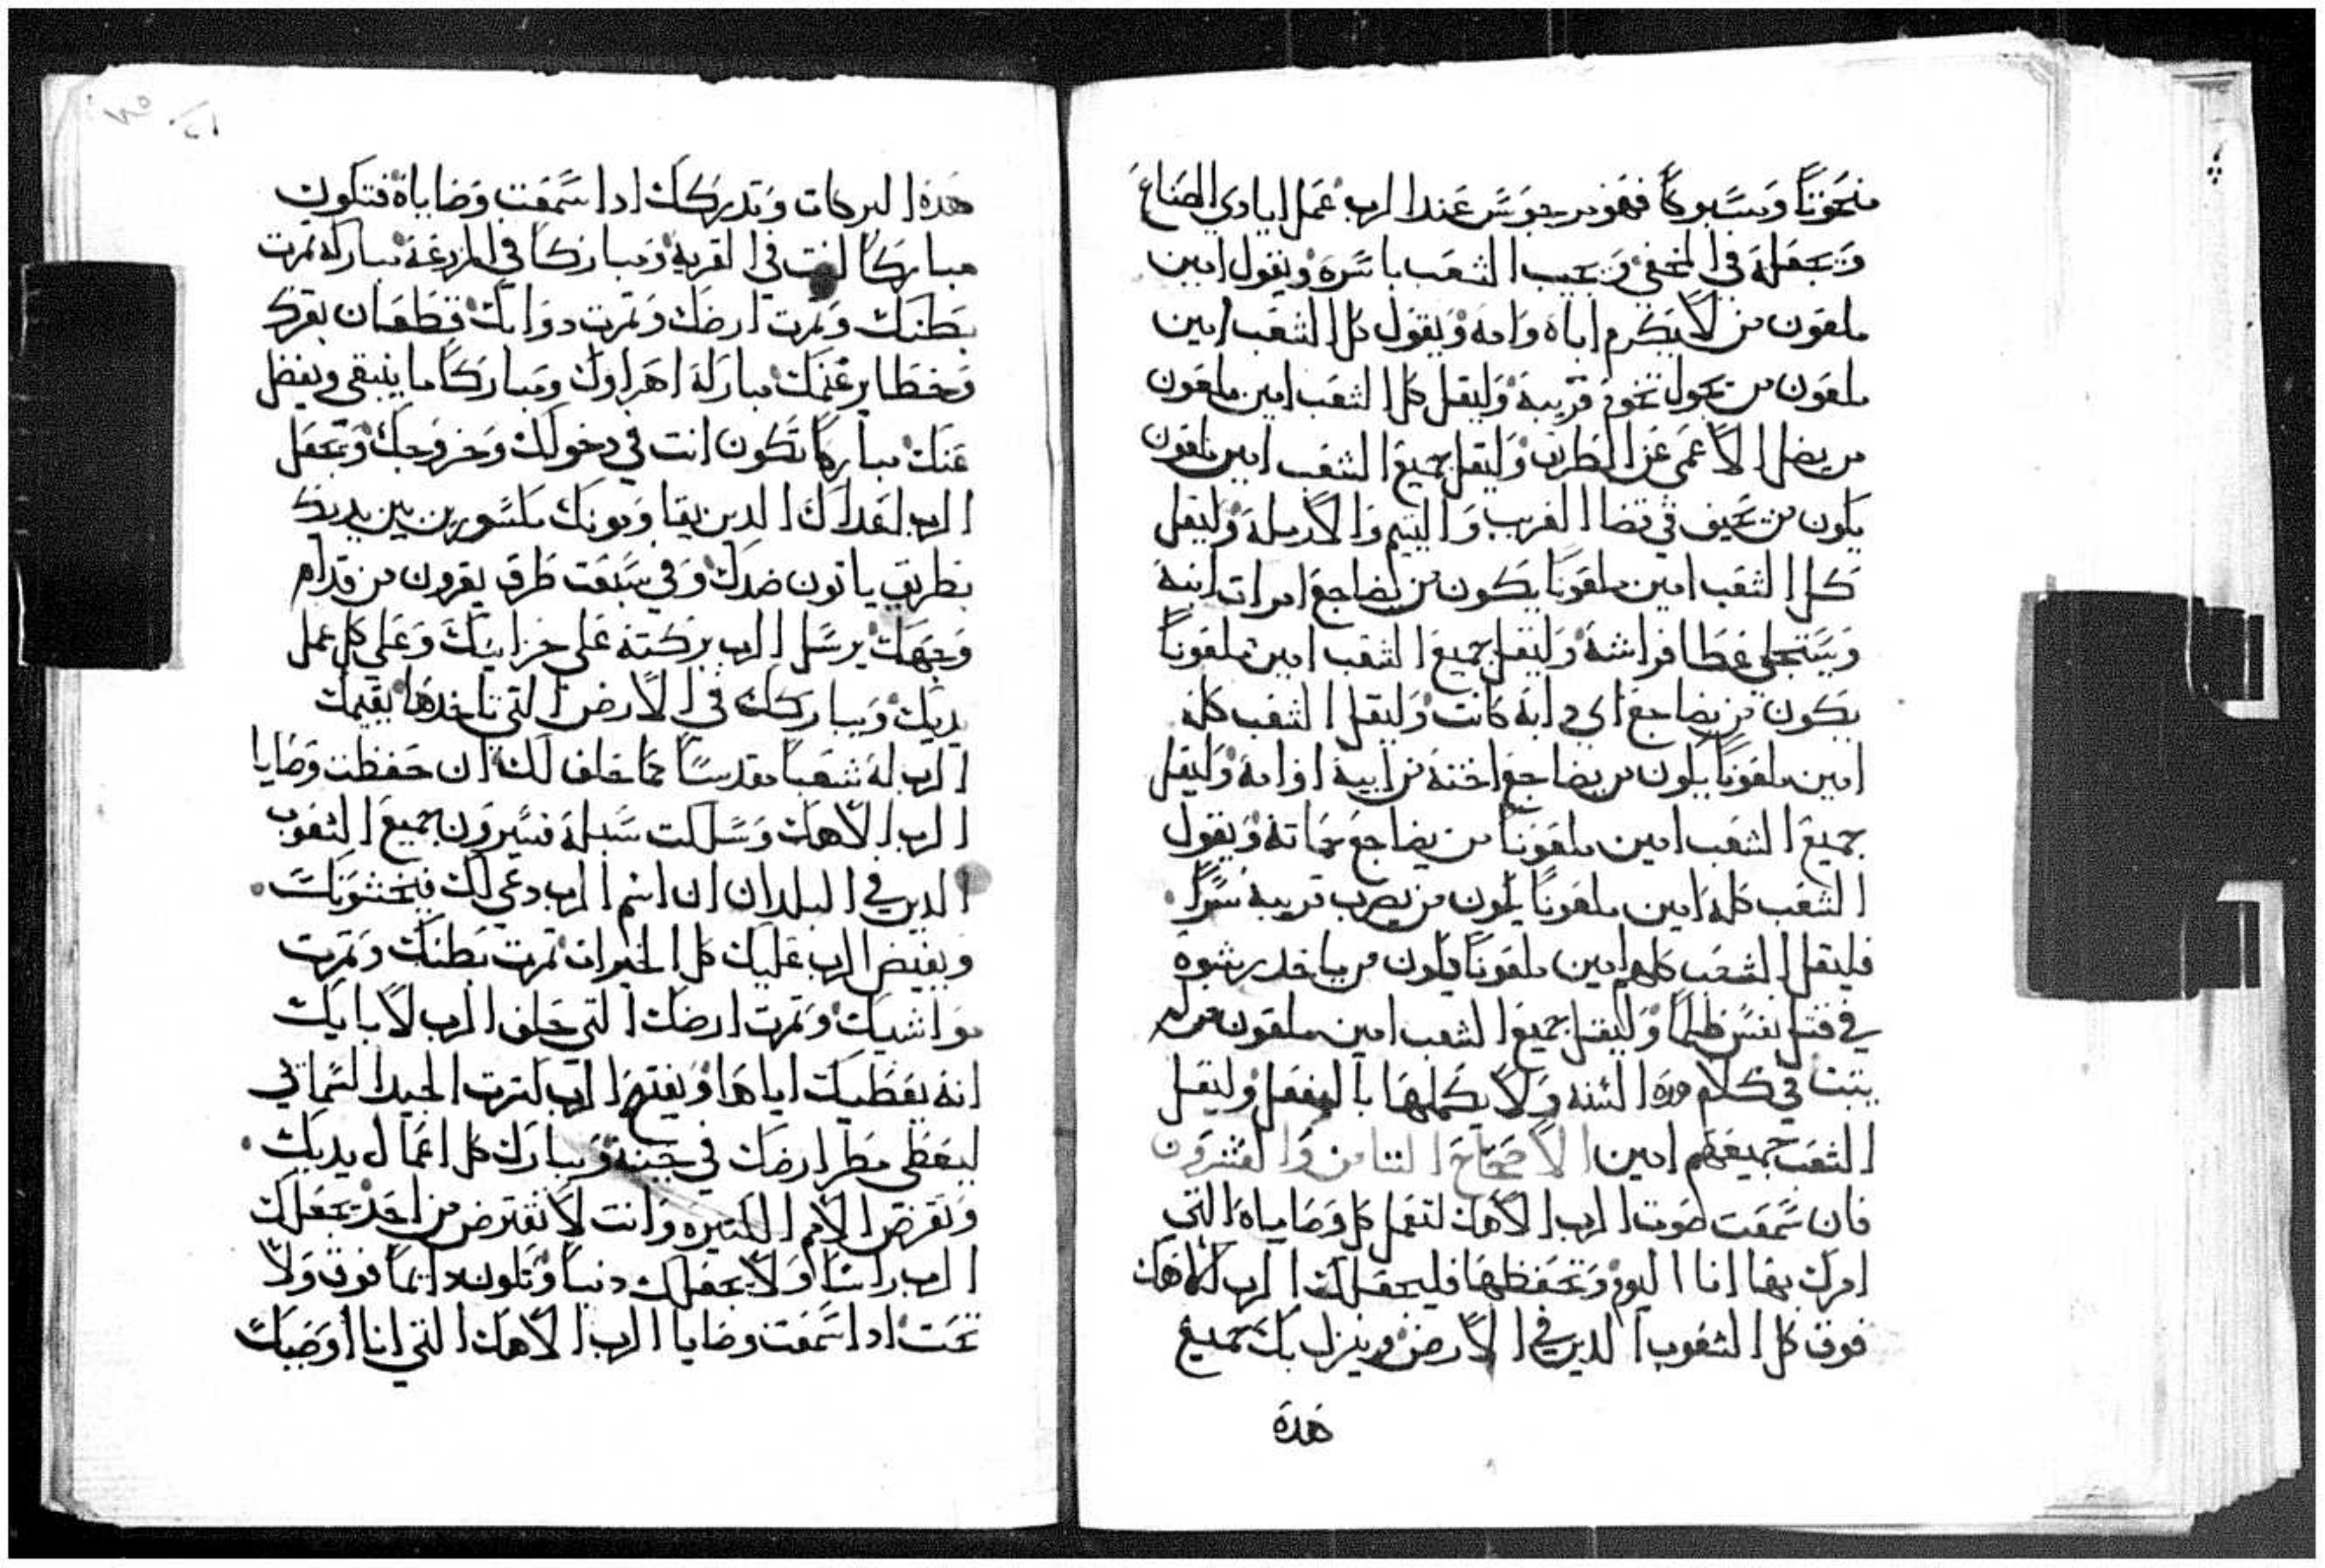 منحوتًا ومسبوكًا فهو مرجوس عند الرب عمل ايادي الصناع
وتجعله في المخفي وتجيب الشعب باسره ويقول امين
ملعون من لا يكرم اباه وامه ويقول كل الشعب امين
ملعون من يحول تخوم قريبه وليقل كل الشعب امين ملعون
من يضل الاعمى عن الطريق وليقل جميع الشعب امين ملعون
يكون من يحيف في قضا الغريب واليتيم والارمله وليقل
كل الشعب امين ملعونًا يكون من يضاجع امرات ابيه
ويستحلي غطا فراشه وليقل جميع الشعب امين ملعونًا
يكون من يضاجع اي دابه كانت وليقل الشعب كله
امين ملعونًا يكون من يضاجع اخته من ابيه او امه وليقل
جميع الشعب امين ملعونًا من يضاجع حماته ويقول
الشعب كله امين ملعونًا يكون من يضرب قريبه سرًا
فليقل الشعب كلهم امين ملعونًا يكون من ياخد رشوه
في قتل نفس ظلمًا وليقل جميع الشعب امين ملعون من لم
يتبت في كلام هده السنه ولا يكملها بالفعل وليقل
الشعب جميعهم امين الاصحاح التامن والعشرون
فان سمعت صوت الرب الاهك لتعمل كل وصاياه التي
امرك بها انا اليوم وتحفظها فليجعلك الرب الاهك
فوق كل الشعوب الدين في الارض وينزل بك جميع
هده
هده البركات وتدركك ادا سمعت وصاياه فتكون
مباركًا انت في القريه ومباركًا في المزرعه مباركه تمرت
بطنك وتمرت ارضك وتمرت دوابك قطعان بقرك
وحظاير غنمك مباركه اهراوك ومباركًا ما يتبقى ويفضل
عنك مباركًا تكون انت في دخولك وخروجك وتجعل
الرب اعداك الدين يقاومونك مكسورين بين يديك
بطريق ياتون ضدك وفي سبعت طرق يفرون من قدام
وجهك يرسل الرب بركته على خزاينك وعلي كل عمل
يديك ويباركك في الارض التي تاخدها يقيمك
الرب له شعبًا مقدسًا كما حلف لك ان حفظت وصايا
الرب الاهك وسلكت سبله فسيرون جميع الشعوب
الدين في البلدان ان اسم الرب دعي لك فيخشونك
ويفيض الرب عليك كل الخيرات تمرت بطنك وتمرت
مواشيك وتمرت ارضك التي حلف الرب لابايك
انه يعطيك اياها ويفتح الرب كنزت الجيد السماني
ليعطي مطر ارضك في حينه ويبارك كل اعمال يديك
وتقرض الامم الكتيره وانت لا تقترض من احد يجعلك
الرب راسًا ولا يجعلك دنبًا وتكون دايمًا فوق ولا
تحت ادا سمعت وصايا الرب الاهك التي انا اوصيك